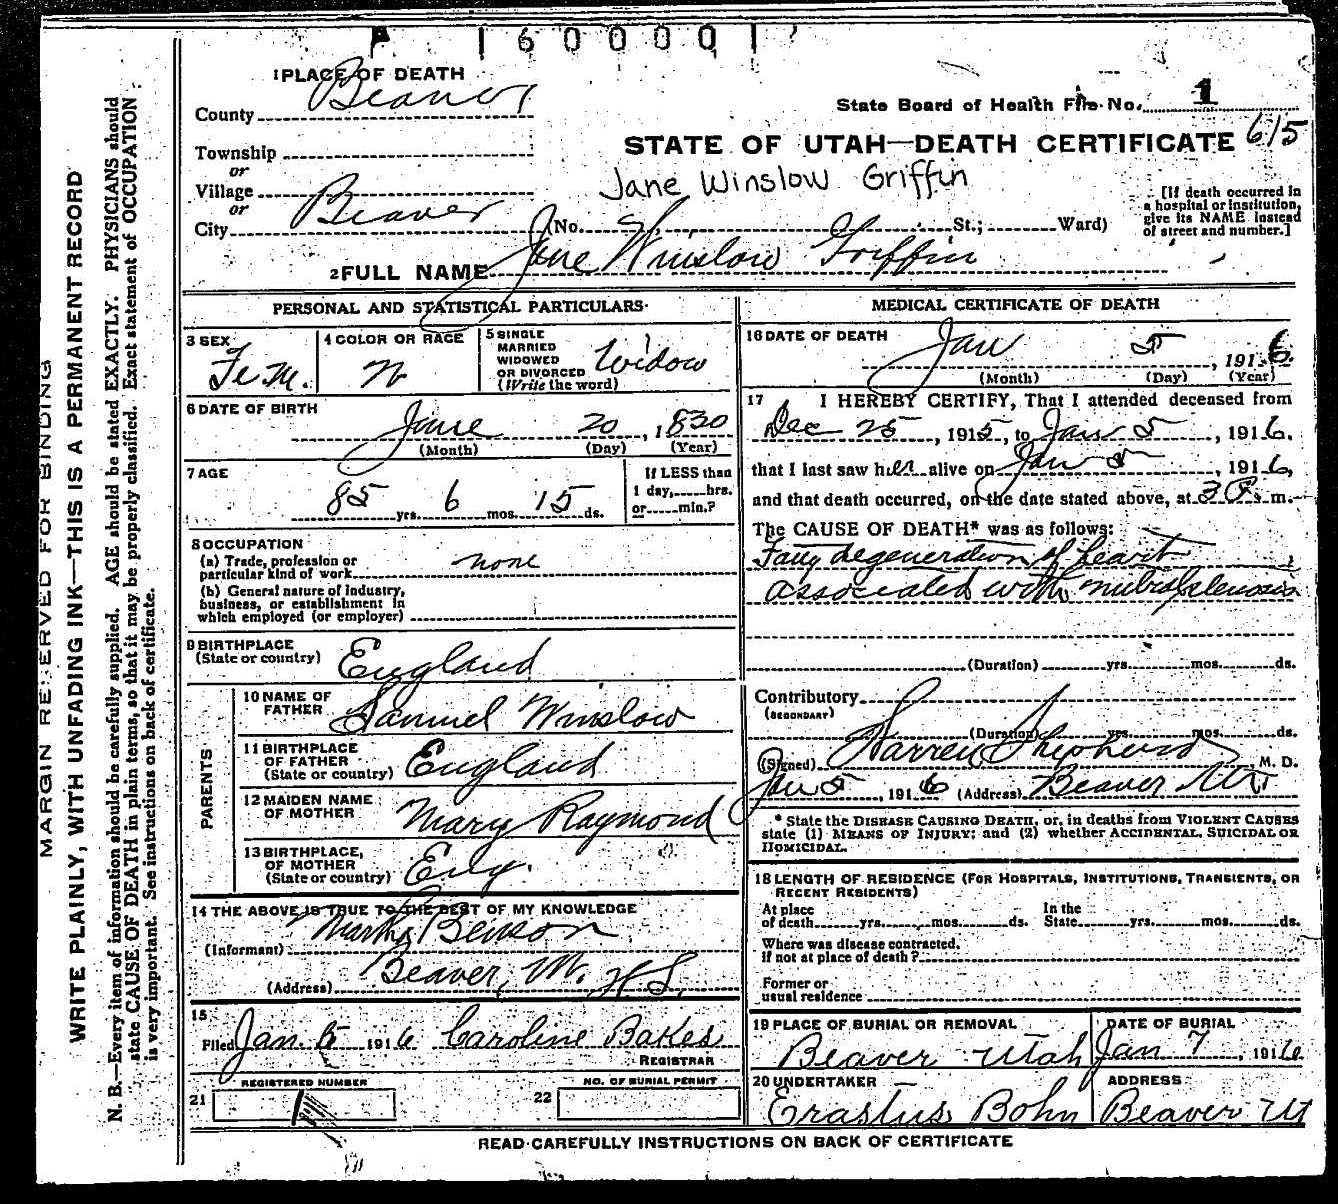 1600001
1 PLACE OF DEATH
County Beaver
State Board of Health File No. 1
Township
STATE OF UTAH—DEATH CERTIFICATE 615
or
Village
Jane Winslow Griffin
or
City Beaver (No. St.; Ward)
[If death occurred in
a hospital or institution,
give its NAME instead
of street and number.]
2 FULL NAME Jane Winslow Griffin
PERSONAL AND STATISTICAL PARTICULARS
3 SEX Fem.
4 COLOR OR RACE W
5 SINGLE
MARRIED
WIDOWED
OR DIVORCED
(Write the word) Widow
6 DATE OF BIRTH
June 20, 1830
(Month) (Day) (Year)
7 AGE
85 yrs. 6 mos. 15 ds.
If LESS than
1 day, hrs.
or min.?
8 OCCUPATION
(a) Trade, profession or
particular kind of work none
(b) General nature of industry,
business, or establishment in
which employed (or employer)
9 BIRTHPLACE
(State or country) England
PARENTS
10 NAME OF
FATHER Samuel Winslow
11 BIRTHPLACE
OF FATHER
(State or country) England
12 MAIDEN NAME
OF MOTHER Mary Raymond
13 BIRTHPLACE,
OF MOTHER
(State or country) Eng.
14 THE ABOVE IS TRUE TO THE BEST OF MY KNOWLEDGE
(Informant) Benson
(Address) Beaver,
15
Filed Jan. 6 1916 Caroline Bakes
REGISTRAR
REGISTERED NUMBER
21 1
NO. OF BURIAL PERMIT
22
MEDICAL CERTIFICATE OF DEATH
16 DATE OF DEATH
Jan 5, 1916.
(Month) (Day) (Year)
17 I HEREBY CERTIFY, That I attended deceased from
Dec 25, 1915, to Jan 5, 1916.
that I last saw her alive on Jan 5, 1916,
and that death occurred, on the date stated above, at 3 P. m.
The CAUSE OF DEATH* was as follows:
Fatty degeneration of heart
associated with mitral stenosis
(Duration) yrs. mos. ds.
Contributory
(SECONDARY)
(Duration) yrs. mos. ds.
(Signed) Warren Shepherd M. D.
Jan 5, 1916 (Address) Beaver Ut
* State the DISEASE CAUSING DEATH, or, in deaths from VIOLENT CAUSES
state (1) MEANS OF INJURY; and (2) whether ACCIDENTAL, SUICIDAL OR
HOMICIDAL.
18 LENGTH OF RESIDENCE (FOR HOSPITALS, INSTITUTIONS, TRANSIENTS, OR
RECENT RESIDENTS)
At place
of death yrs. mos. ds.
In the
State yrs. mos. ds.
Where was disease contracted,
if not at place of death?
Former or
usual residence
19 PLACE OF BURIAL OR REMOVAL
Beaver Utah
DATE OF BURIAL
Jan 7, 1916
20 UNDERTAKER
Erastus Bohn
ADDRESS
Beaver Ut
READ CAREFULLY INSTRUCTIONS ON BACK OF CERTIFICATE
MARGIN RESERVED FOR BINDING
WRITE PLAINLY, WITH UNFADING INK—THIS IS A PERMANENT RECORD
N. B.—Every item of information should be carefully supplied. AGE should be stated EXACTLY. PHYSICIANS should
state CAUSE OF DEATH in plain terms, so that it may be properly classified. Exact statement of OCCUPATION
is very important. See instructions on back of certificate.